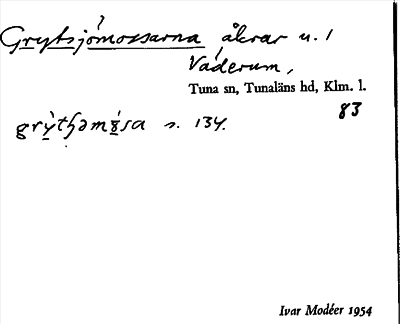 Grytsjömossarna åkrar u. 1
Väderum,
Tuna sn, Tunaläns hd, Klm. l.
83
s. 134.
Ivar Modéer 1954